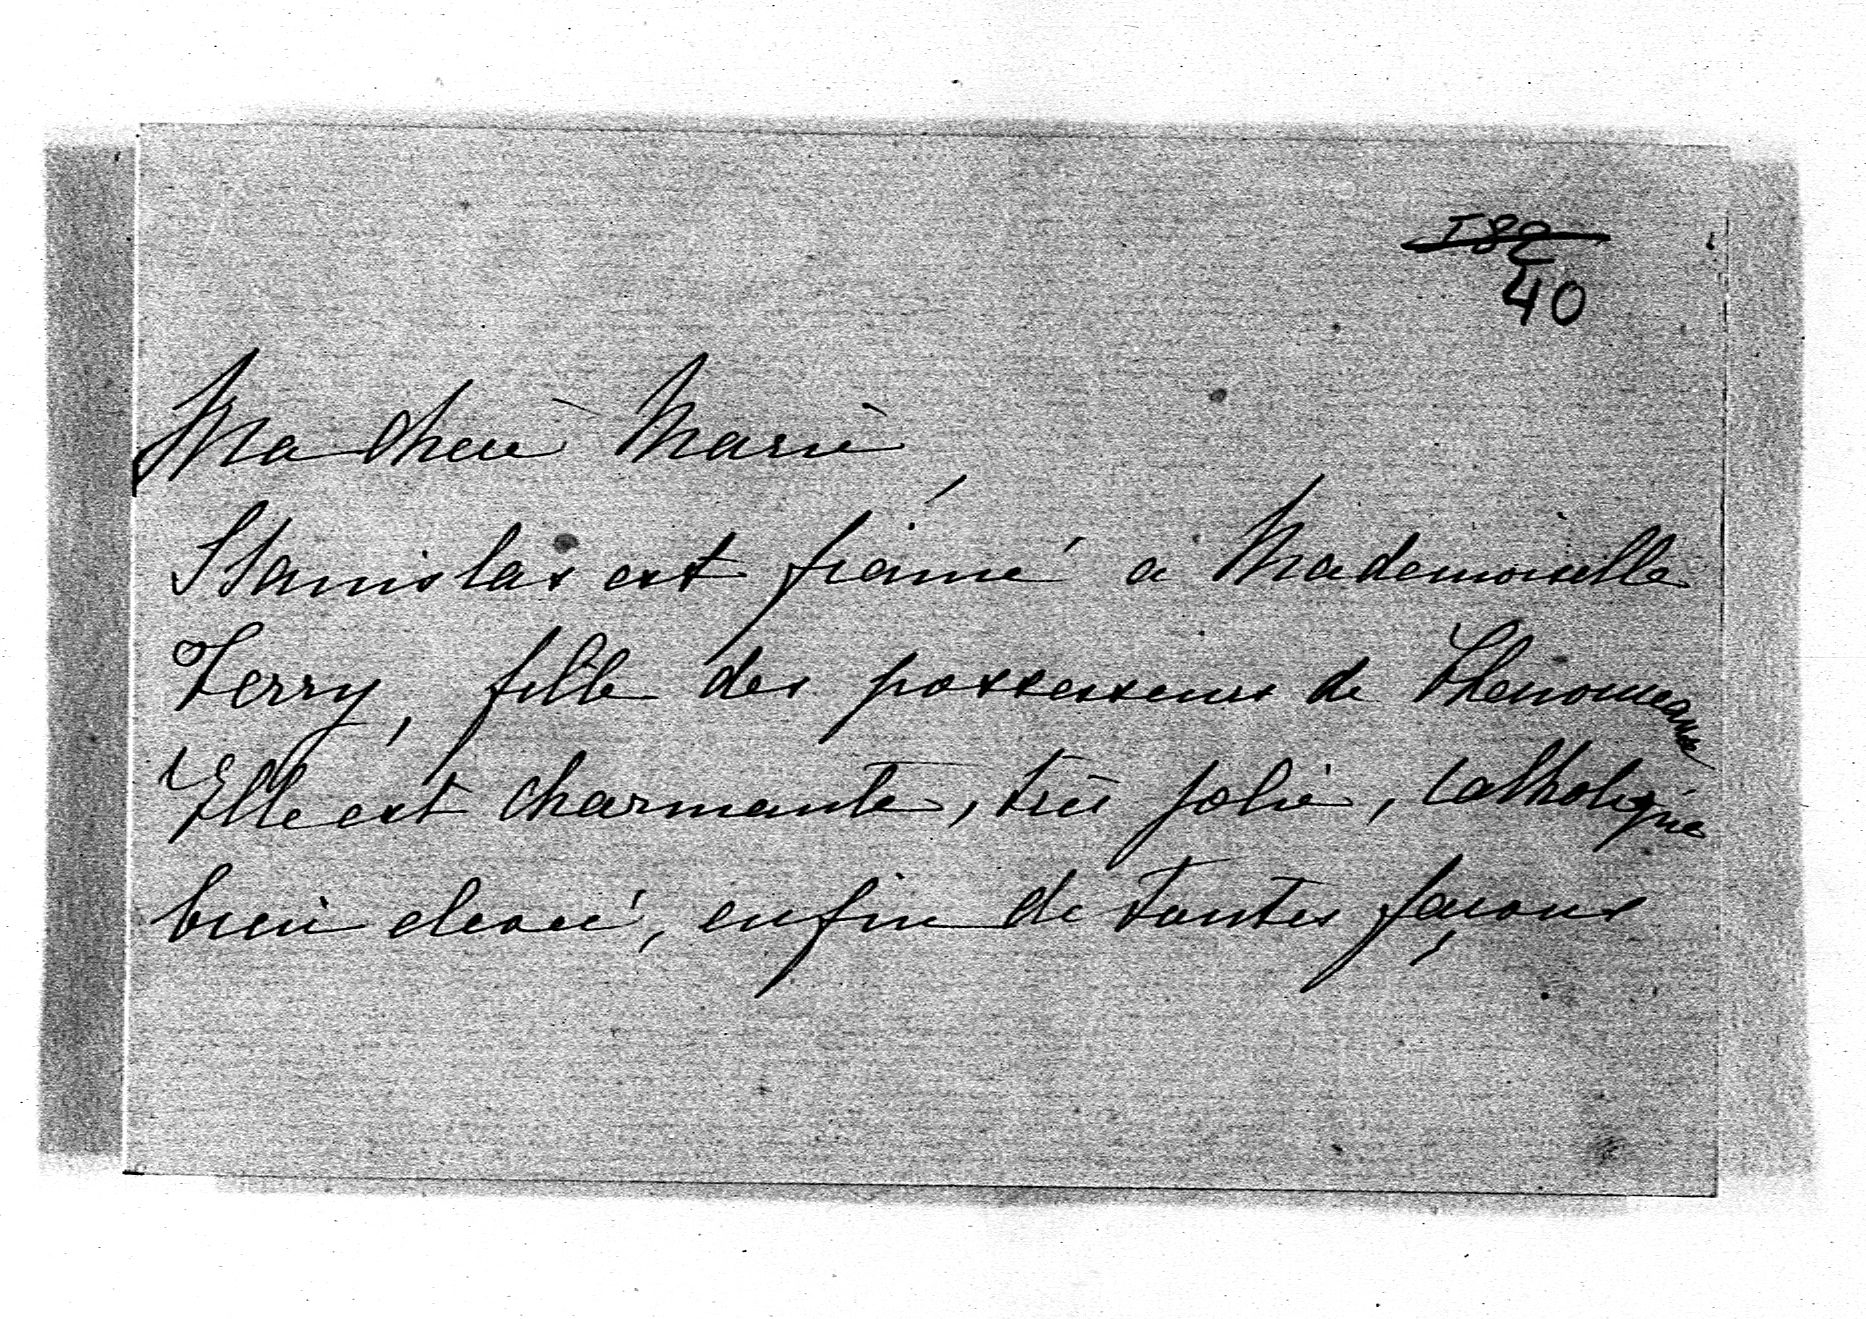 ~~I82~~
40
Ma chere Marie
Stanislas est fiancé a Mademoiselle
Terry, fille des possesseurs de Chenonceaux
Elle est charmante, très jolie, Catholique
bien elevée, enfin de toutes façons